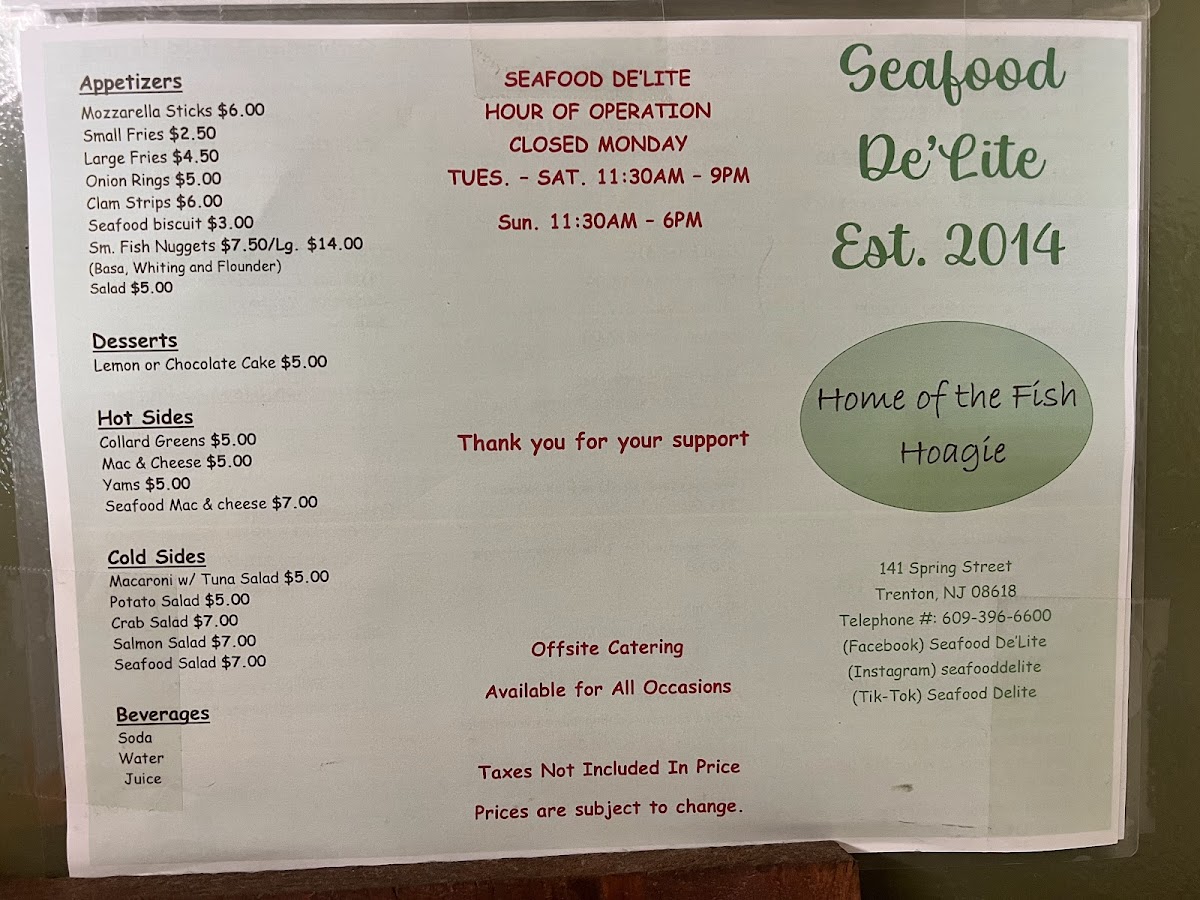 Appetizers
Mozzarella Sticks $6.00
Small Fries $2.50
Large Fries $4.50
Onion Rings $5.00
Clam Strips $6.00
Seafood biscuit $3.00
Sm. Fish Nuggets $7.50/Lg. $14.00
(Basa, Whiting and Flounder)
Salad $5.00
Desserts
Lemon or Chocolate Cake $5.00
Hot Sides
Collard Greens $5.00
Mac & Cheese $5.00
Yams $5.00
Seafood Mac & cheese $7.00
Cold Sides
Macaroni w/ Tuna Salad $5.00
Potato Salad $5.00
Crab Salad $7.00
Salmon Salad $7.00
Seafood Salad $7.00
Beverages
Soda
Water
Juice
SEAFOOD DE'LITE
HOUR OF OPERATION
CLOSED MONDAY
TUES. - SAT. 11:30AM - 9PM
Sun. 11:30AM - 6PM
Thank you for your support
Offsite Catering
Available for All Occasions
Taxes Not Included In Price
Prices are subject to change.
Seafood
De'Lite
Est. 2014
Home of the Fish
Hoagie
141 Spring Street
Trenton, NJ 08618
Telephone #: 609-396-6600
(Facebook) Seafood De'Lite
(Instagram) seafooddelite
(Tik-Tok) Seafood Delite